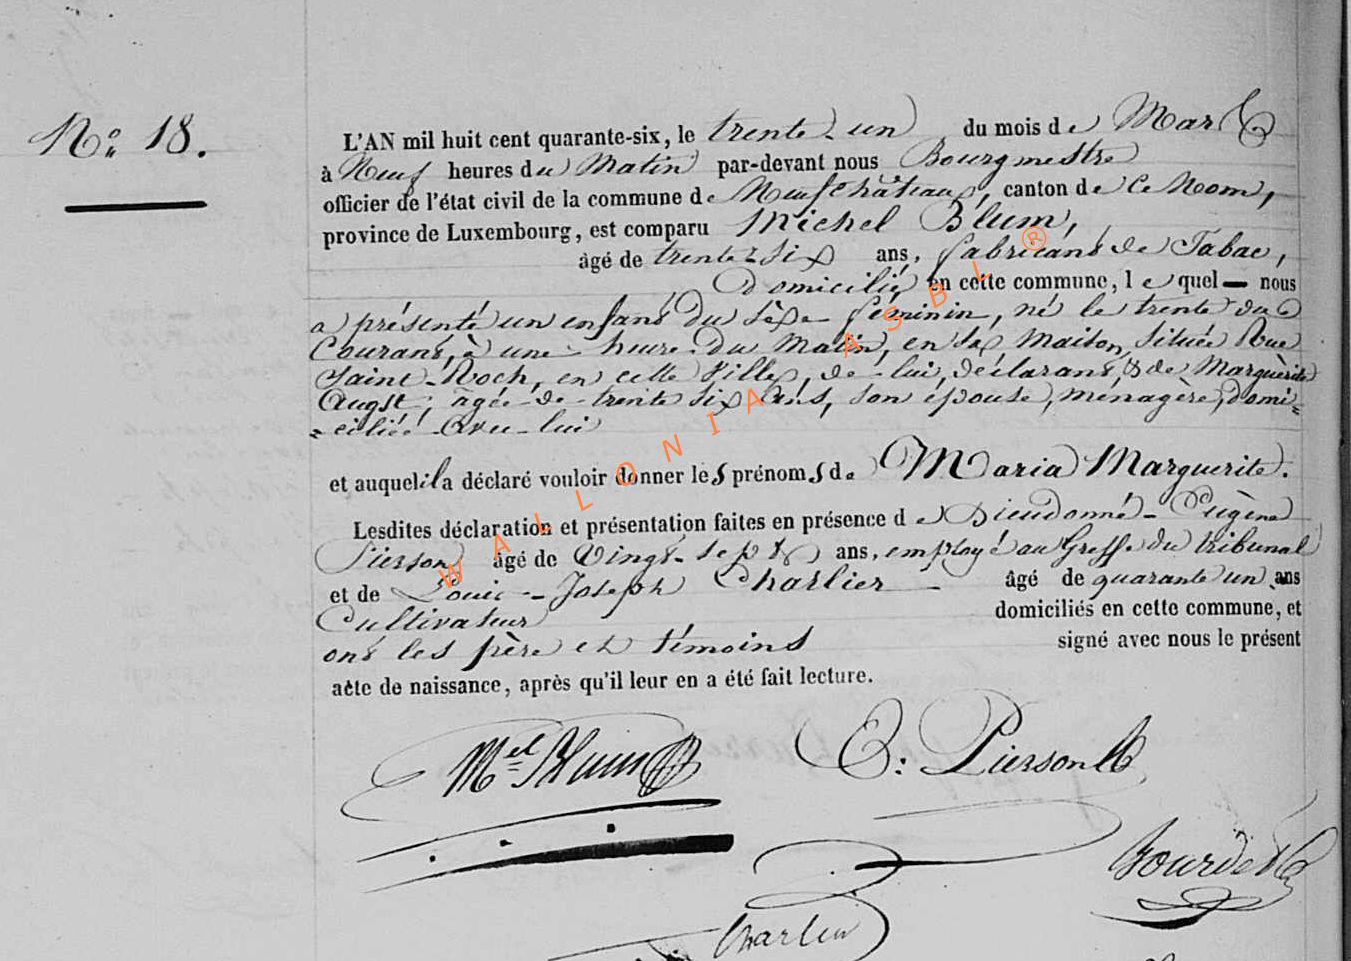 N° 18.
L'AN mil huit cent quarante-six, le trente-un du mois de Mars
à Neuf heures du Matin par-devant nous Bourgmestre
officier de l'état civil de la commune de Neufchâteau, canton de ce Nom,
province de Luxembourg, est comparu Michel Blum,
âgé de trente-six ans, fabricant de Tabac,
Domicilié en cette commune, lequel — nous
a présenté un enfant du sèxe féminin, né le trente du
Courant, à une heure du Matin, en sa Maison, située Rue
Saint-Roch, en cette Ville, de lui, déclarant, & de Marguèrite
Augst, âgée de trente six ans, son épouse, ménagère, domi=
=ciliée avec lui
et auquel il a déclaré vouloir donner les prénoms de Maria Marguerite.
Lesdites déclaration et présentation faites en présence de Dieudonné-Eugène
Pierson âgé de Vingt-sept ans, employé au Greffe du tribunal
et de Louis-Joseph Charlier âgé de quarante un ans
Cultivateur domiciliés en cette commune, et
ont les père et témoins signé avec nous le présent
acte de naissance, après qu'il leur en a été fait lecture.
Mel Blum E: Pierson
Bourdet
Charlier
WALLONIA ASBL ®